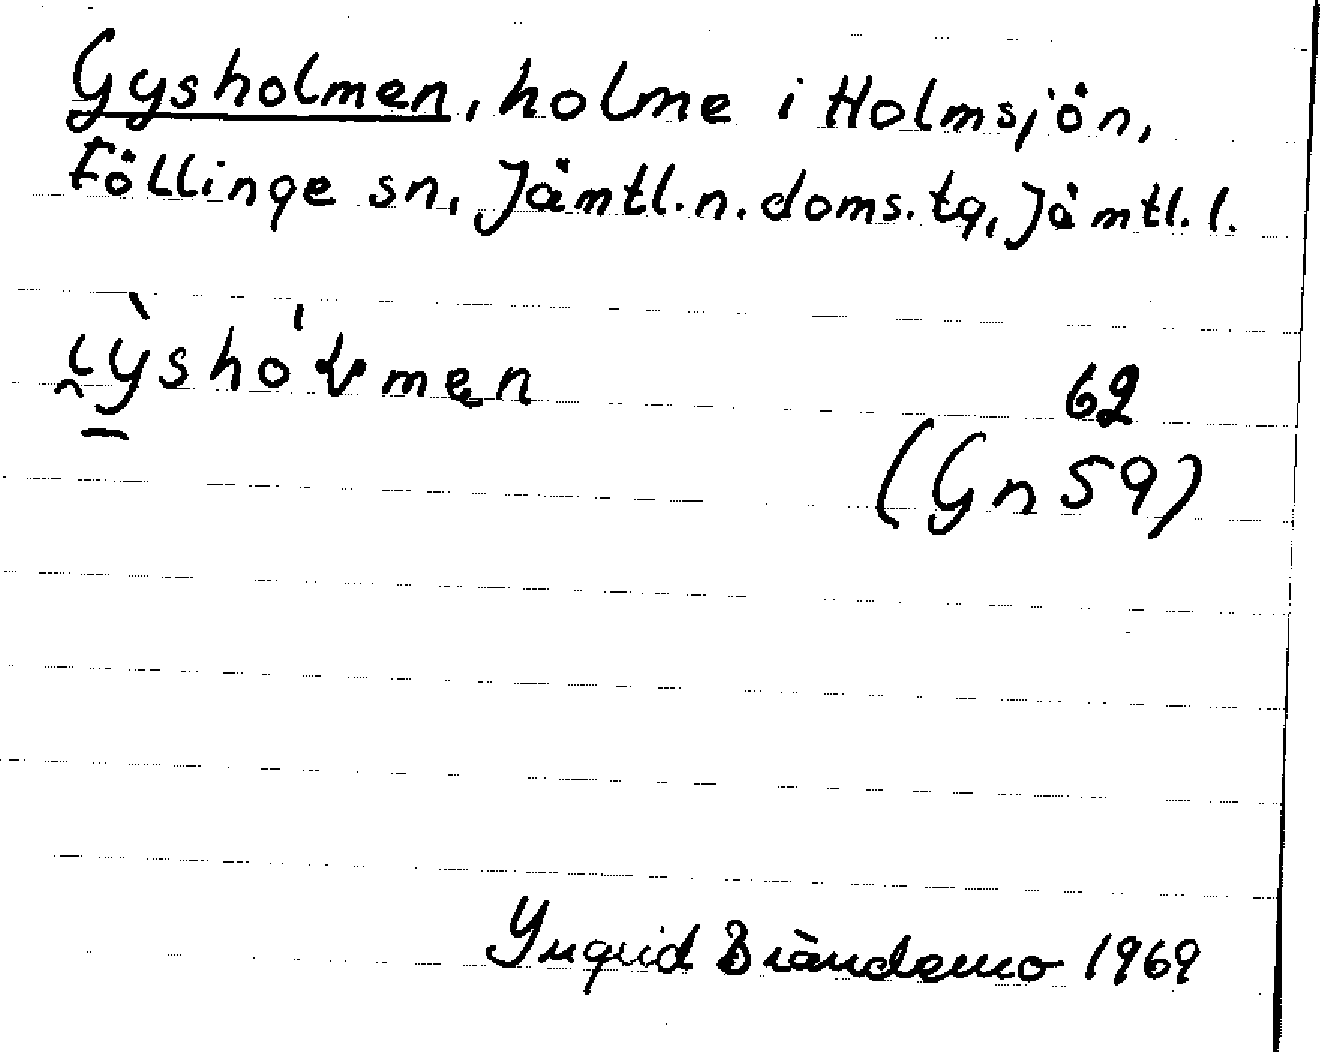 Gysholmen, holme i Holmsjön,
Föllinge sn, Jämtl.n.doms.tg, Jämtl.l.
62
(Gn 59)
Ingrid Brändemo 1969